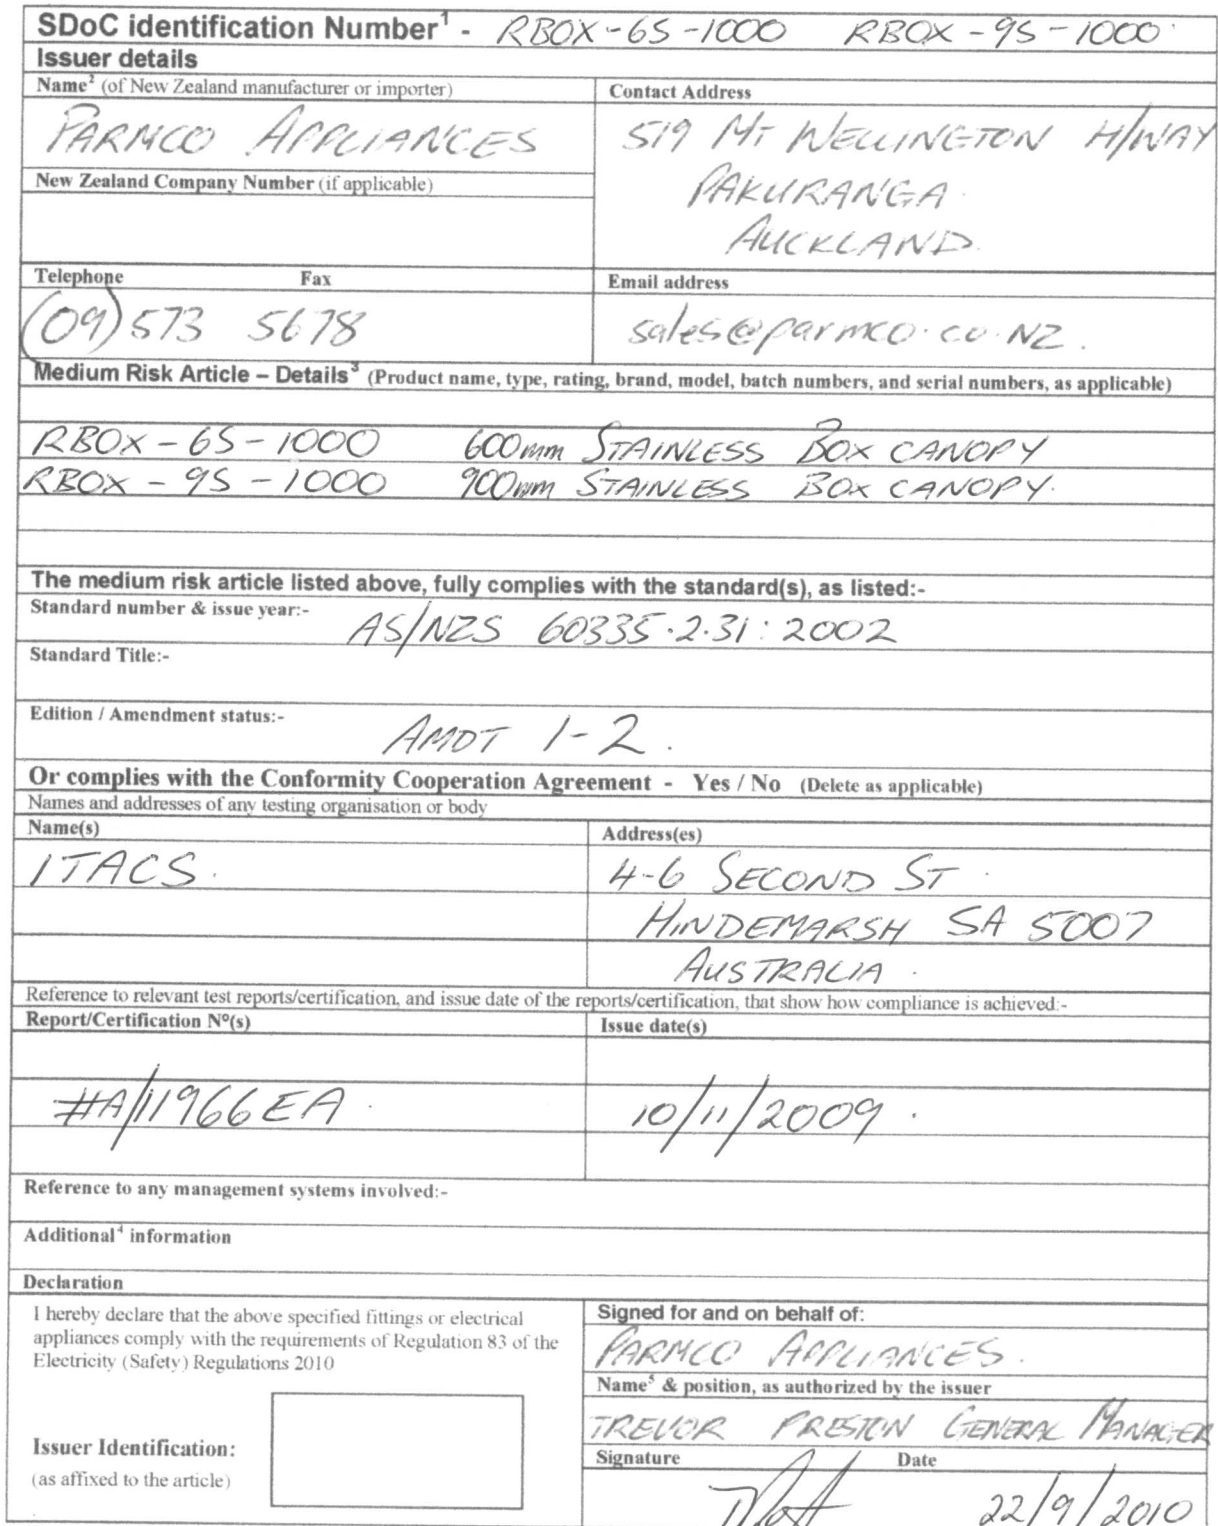 SDoC identification Number¹ - RBOX-6S-1000 RBOX-9S-1000
Issuer details
Name² (of New Zealand manufacturer or importer)
PARMCO APPLIANCES
Contact Address
519 MT WELLINGTON H/WAY
PAKURANGA
AUCKLAND
New Zealand Company Number (if applicable)
Telephone Fax
(09) 573 5678
Email address
sales@parmco.co.NZ.
Medium Risk Article – Details³ (Product name, type, rating, brand, model, batch numbers, and serial numbers, as applicable)
RBOX-6S-1000 600mm STAINLESS BOX CANOPY
RBOX-9S-1000 900mm STAINLESS BOX CANOPY.
The medium risk article listed above, fully complies with the standard(s), as listed:-
Standard number & issue year:-
AS/NZS 60335.2.31:2002
Standard Title:-
Edition / Amendment status:-
AMDT 1-2.
Or complies with the Conformity Cooperation Agreement - Yes / No (Delete as applicable)
Names and addresses of any testing organisation or body
Name(s)
ITACS.
Address(es)
4-6 SECOND ST.
HINDEMARSH SA 5007
AUSTRALIA.
Reference to relevant test reports/certification, and issue date of the reports/certification, that show how compliance is achieved:-
Report/Certification Nº(s)
#A/11966EA.
Issue date(s)
10/11/2009.
Reference to any management systems involved:-
Additional⁴ information
Declaration
I hereby declare that the above specified fittings or electrical
appliances comply with the requirements of Regulation 83 of the
Electricity (Safety) Regulations 2010
Issuer Identification:
(as affixed to the article)
Signed for and on behalf of:
PARMCO APPLIANCES.
Name⁵ & position, as authorized by the issuer
TREVOR PRESTON GENERAL MANAGER
Signature Date
22/9/2010